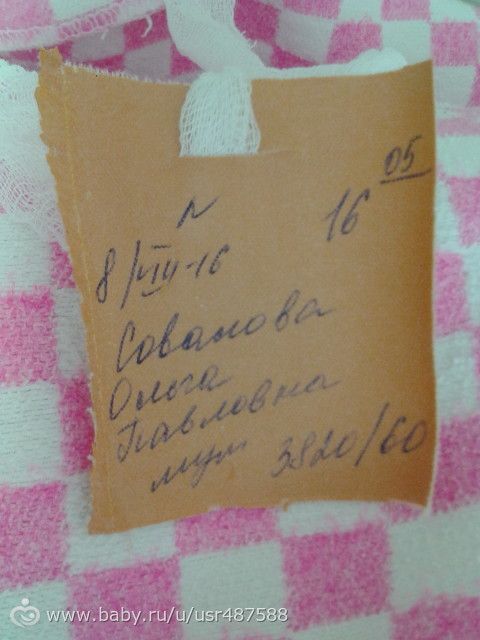 N
16 05
8/VIII-16
Совалова
Ольга
Павловна
муж 3820/60
www.baby.ru/u/usr487588